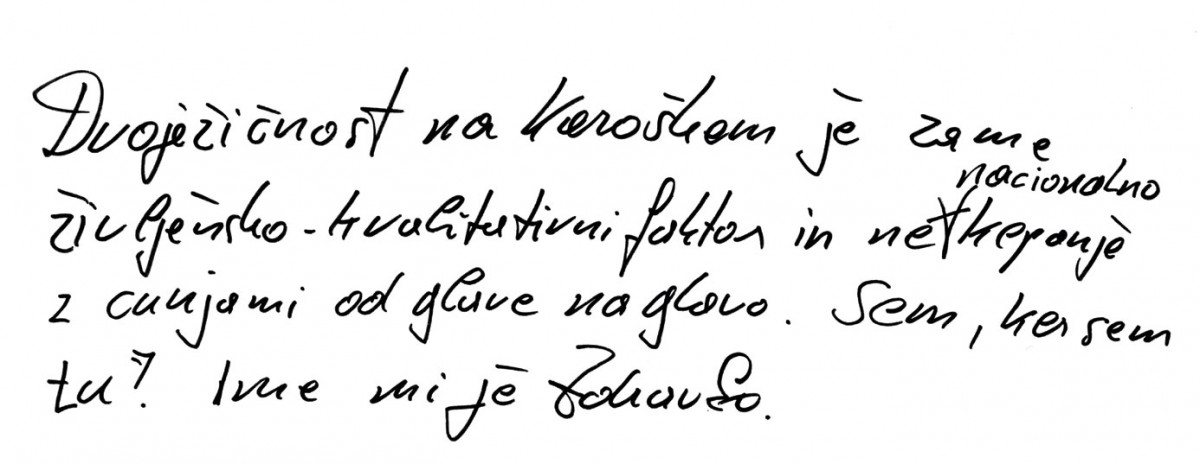 Dvojezičnost na Koroškem je zame
nacionalno
življensko-kvalitativni faktor in ne krepanje
z cunjami od glave na glavo. Sem, ker sem
tu? Ime mi je